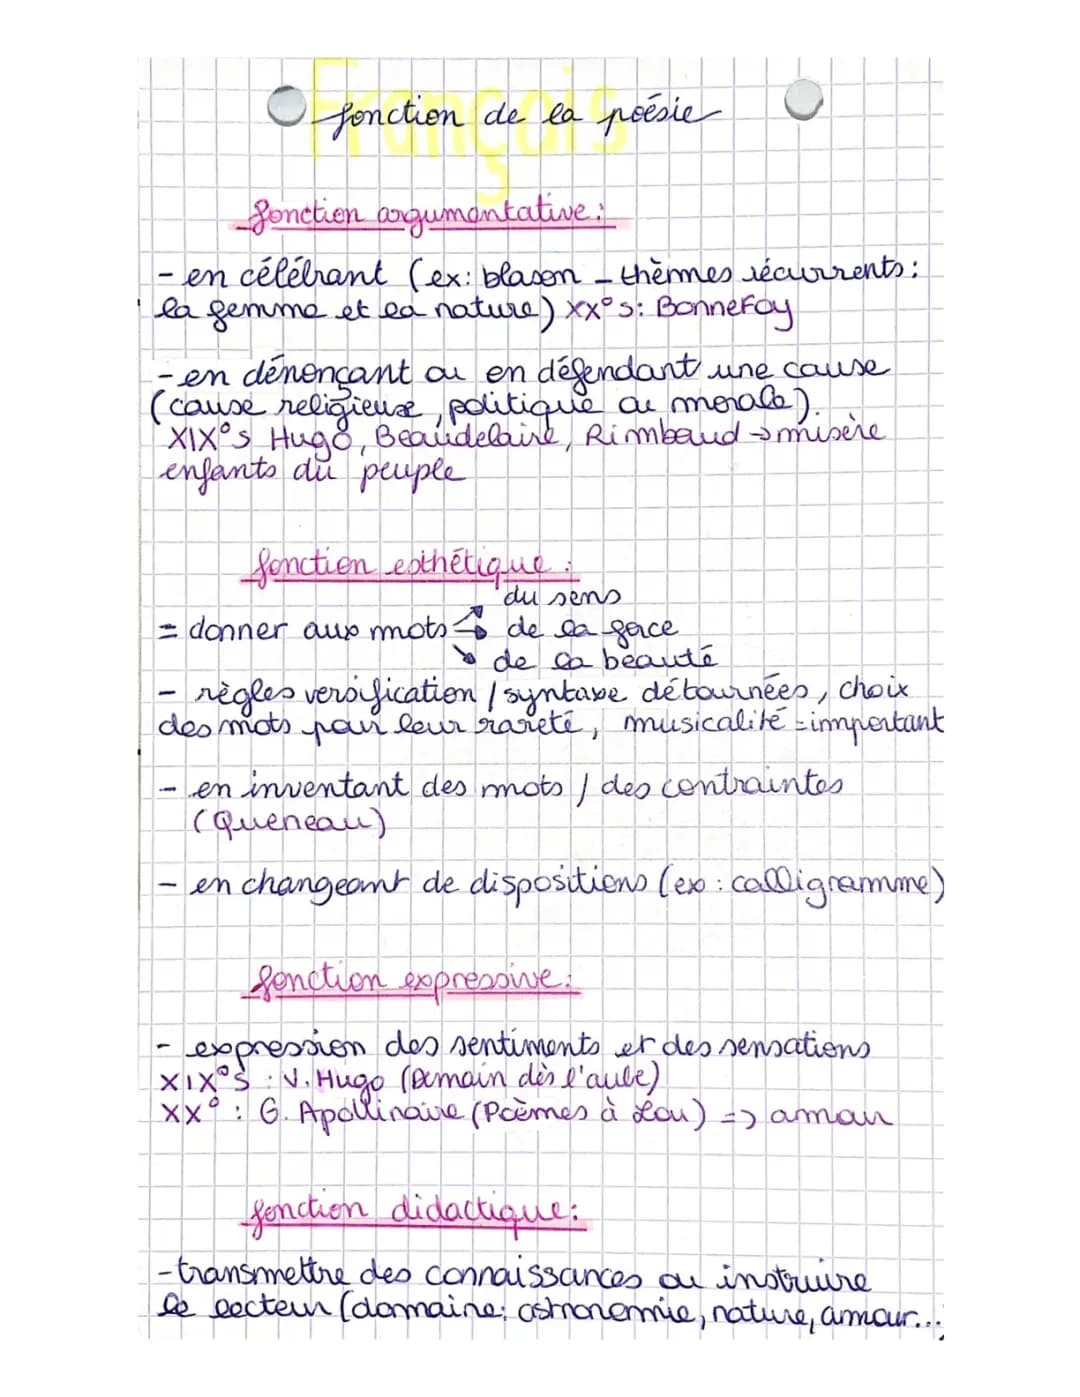 Français
fonction de la poésie
fonction argumentative :
- en célébrant (ex : blason - thèmes récurrents :
la femme et la nature) XX°s : Bonnefoy
- en dénonçant ou en défendant une cause
(cause religieuse, politique ou morale).
XIX°s Hugo, Beaudelaire, Rimbaud → misère
enfants du peuple
fonction esthétique :
du sens
= donner aux mots → de la force
de la beauté
- règles versification / syntaxe détournées, choix
des mots pour leur rareté, musicalité = important
- en inventant des mots / des contraintes
(Queneau)
- en changeant de dispositions (ex : calligramme)
fonction expressive :
- expression des sentiments et des sensations
XIX°s : V. Hugo (Demain dès l'aube)
XX° : G. Apollinaire (Poèmes à Lou) => amour
fonction didactique :
- transmettre des connaissances ou instruire
le lecteur (domaine : astronomie, nature, amour...)